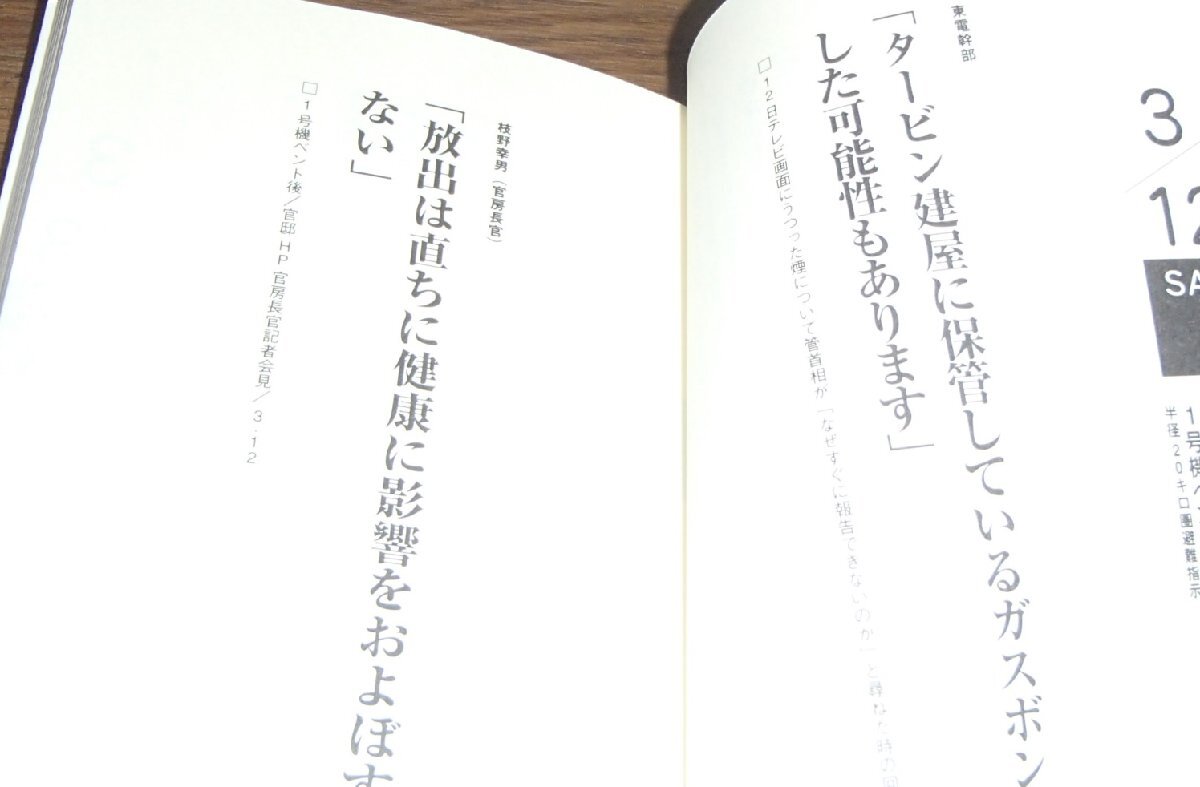 3/12
SA
1号機ベ
半径20キロ圏避難指示
東電幹部
「タービン建屋に保管しているガスボン
した可能性もあります」
□12日テレビ画面にうつった煙について菅首相が「なぜすぐに報告できないのか」と尋ねた時の回
枝野幸男（官房長官）
「放出は直ちに健康に影響をおよぼす
ない」
□1号機ベント後／官邸HP 官房長官記者会見／3・12